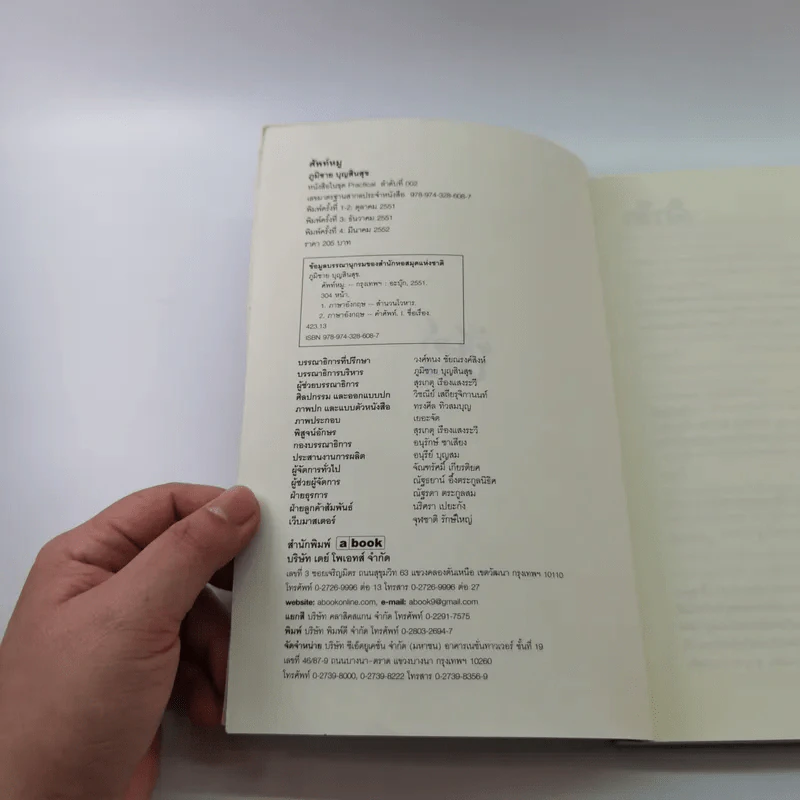 ศัพท์หมู
ภูมิชาย บุญสินสุข
หนังสือในชุด Practical ลำดับที่ 002
เลขมาตรฐานสากลประจำหนังสือ 978-974-328-608-7
พิมพ์ครั้งที่ 1-2: ตุลาคม 2551
พิมพ์ครั้งที่ 3: ธันวาคม 2551
พิมพ์ครั้งที่ 4: มีนาคม 2552
ราคา 205 บาท
ข้อมูลบรรณานุกรมของสำนักหอสมุดแห่งชาติ
ภูมิชาย บุญสินสุข.
ศัพท์หมู. -- กรุงเทพฯ : อะบุ๊ก, 2551.
304 หน้า.
1. ภาษาอังกฤษ -- สำนวนโวหาร.
2. ภาษาอังกฤษ -- คำศัพท์. I. ชื่อเรื่อง.
423.13
ISBN 978-974-328-608-7
บรรณาธิการที่ปรึกษา วงศ์ทนง ชัยณรงค์สิงห์
บรรณาธิการบริหาร ภูมิชาย บุญสินสุข
ผู้ช่วยบรรณาธิการ สุรเกตุ เรืองแสงระวี
ศิลปกรรม และออกแบบปก วิชณีย์ เสถียรุจิกานนท์
ภาพปก และแบบตัวหนังสือ ทรงศีล ทิวสมบุญ
ภาพประกอบ เยอะจัด
พิสูจน์อักษร สุรเกตุ เรืองแสงระวี
กองบรรณาธิการ อนุรักษ์ ชาเสียง
ประสานงานการผลิต อนุรีย์ บุญสม
ผู้จัดการทั่วไป จัณฑรัศมิ์ เกียรติยศ
ผู้ช่วยผู้จัดการ ณัฐธยาน์ อึ้งตระกูลนิธิศ
ฝ่ายธุรการ ณัฐรดา ตระกูลสม
ฝ่ายลูกค้าสัมพันธ์ นริศรา เปยะกัง
เว็บมาสเตอร์ จุฬชาติ รักษ์ใหญ่
สำนักพิมพ์ a book
บริษัท เดย์ โพเอทส์ จำกัด
เลขที่ 3 ซอยเจริญมิตร ถนนสุขุมวิท 63 แขวงคลองตันเหนือ เขตวัฒนา กรุงเทพฯ 10110
โทรศัพท์ 0-2726-9996 ต่อ 13 โทรสาร 0-2726-9996 ต่อ 27
website: abookonline.com, e-mail: abook9@gmail.com
แยกสี บริษัท คลาสิคสแกน จำกัด โทรศัพท์ 0-2291-7575
พิมพ์ บริษัท พิมพ์ดี จำกัด โทรศัพท์ 0-2803-2694-7
จัดจำหน่าย บริษัท ซีเอ็ดยูเคชั่น จำกัด (มหาชน) อาคารเนชั่นทาวเวอร์ ชั้นที่ 19
เลขที่ 46/87-9 ถนนบางนา-ตราด แขวงบางนา กรุงเทพฯ 10260
โทรศัพท์ 0-2739-8000, 0-2739-8222 โทรสาร 0-2739-8356-9